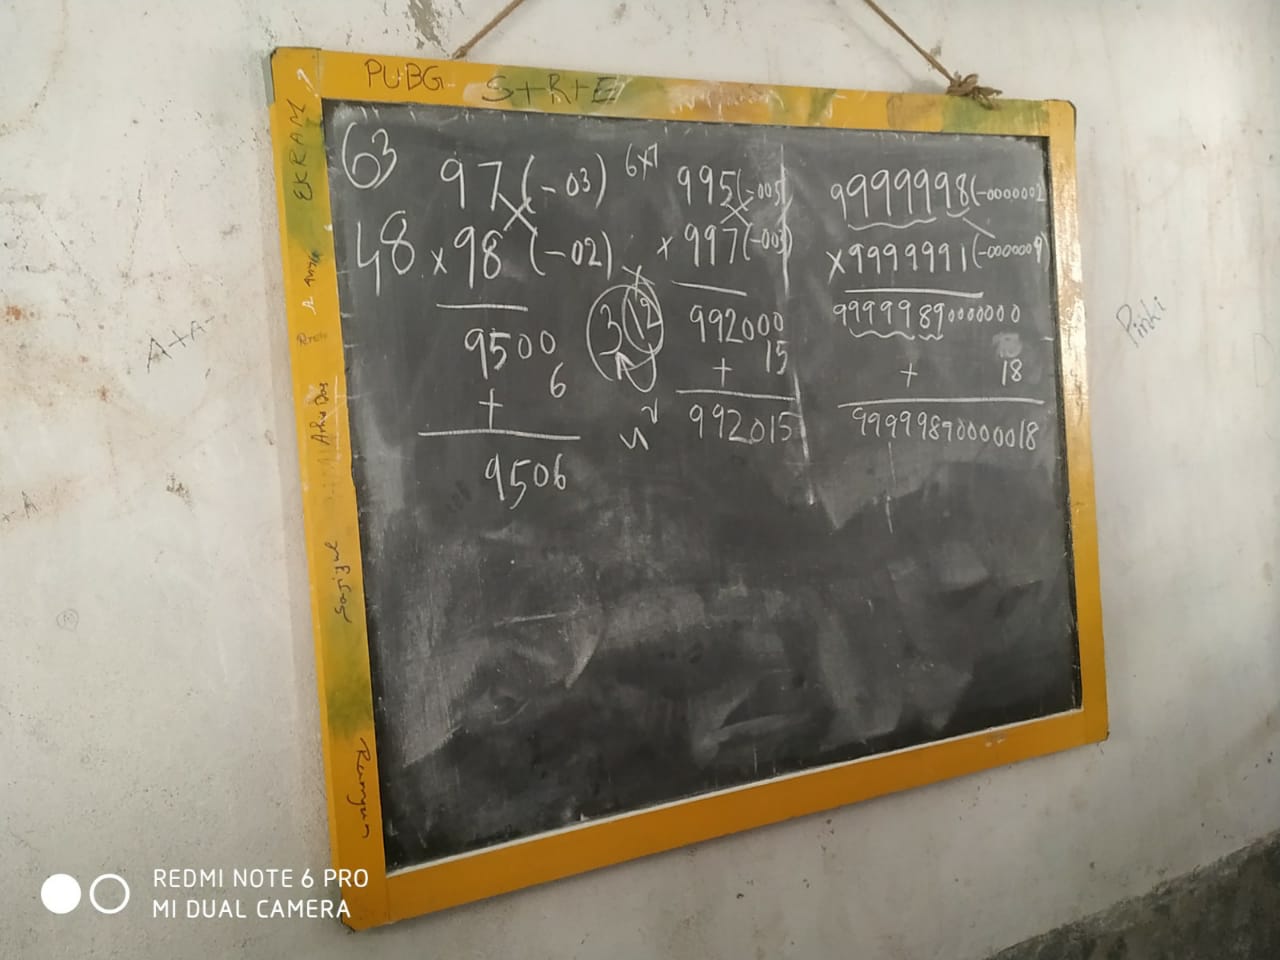 PUBG S+R+E
EKRAM
Sajijul
A+A
Pinki
63
48
97 (-03)
×98 (-02)
9500
+ 6
9506
6×7
3 12
995(-005)
×997(-003)
992000
+ 15
992015
9999998(-0000002
×9999991(-0000009)
99999890000000
+ 18
99999890000018
REDMI NOTE 6 PRO
MI DUAL CAMERA